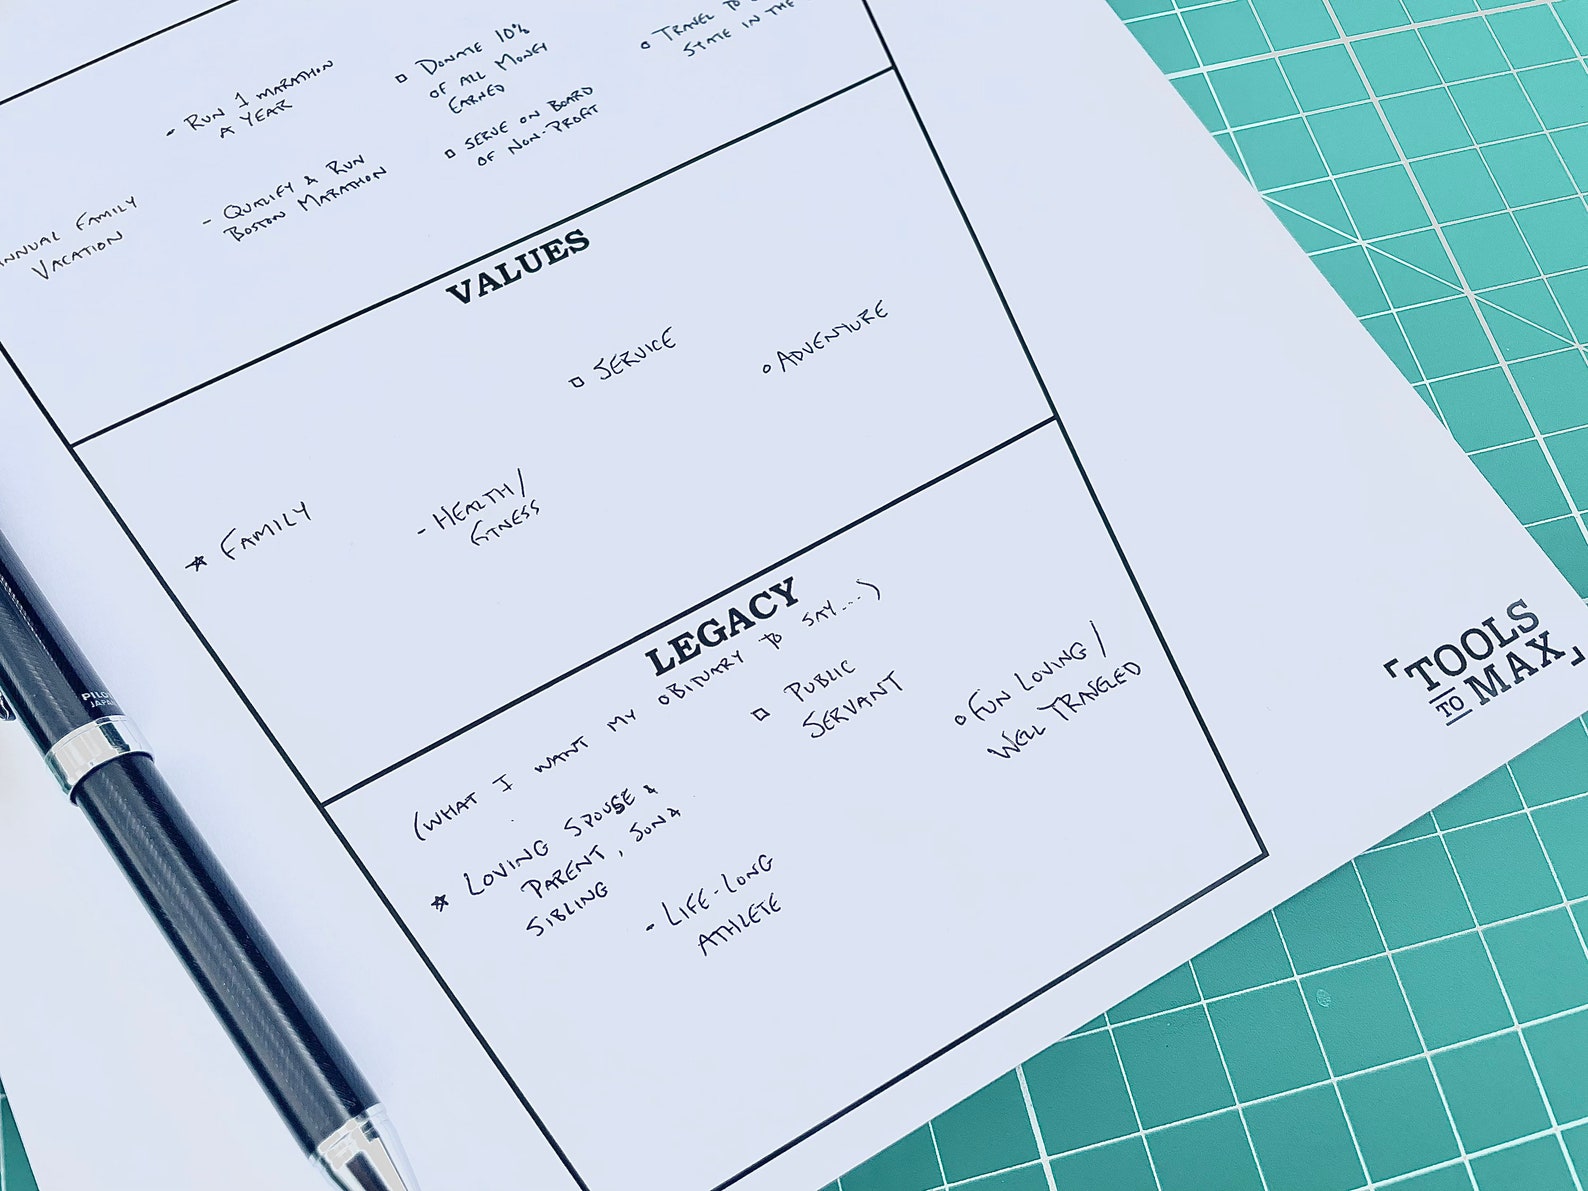 - RUN 1 MARATHON
A YEAR
□ DONATE 10%
OF ALL MONEY
EARNED
○ TRAVEL TO
STATE IN THE
ANNUAL FAMILY
VACATION
- QUALIFY & RUN
BOSTON MARATHON
□ SERVE ON BOARD
OF NON-PROFIT
VALUES
☆ FAMILY
- HEALTH/
FITNESS
□ SERVICE
○ ADVENTURE
LEGACY
(WHAT I WANT MY OBITUARY TO SAY...)
☆ LOVING SPOUSE &
PARENT, SON &
SIBLING
- LIFE-LONG
ATHLETE
□ PUBLIC
SERVANT
○ FUN LOVING /
WELL TRAVELED
TOOLS
TO MAX
PILOT
JAPAN